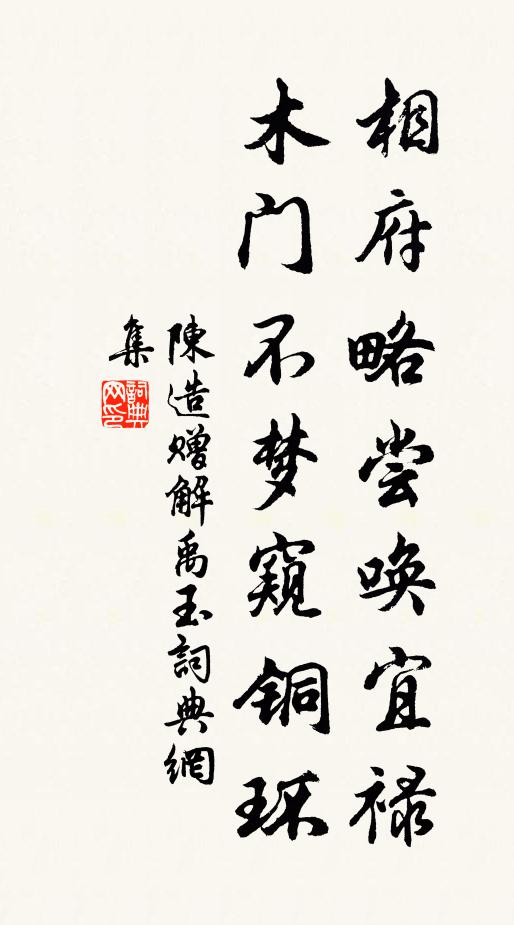 相府略尝唤宜禄
木门不梦窥铜环
陳造赠解禹玉詞典網
集
詞典
网印